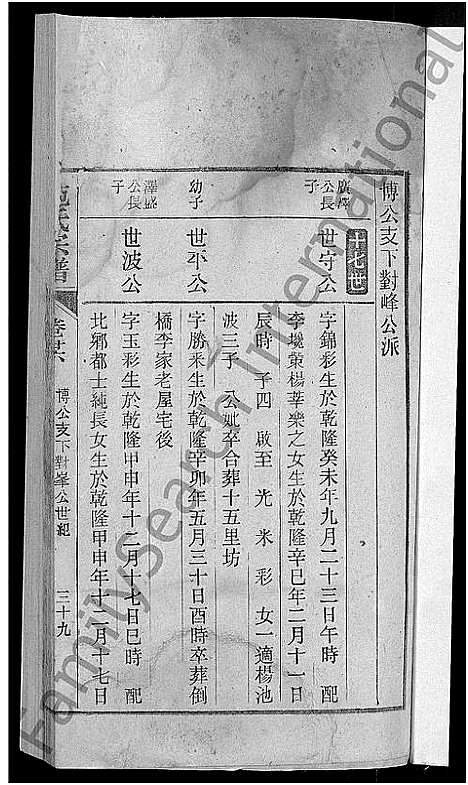 博公支下對峰公派
十七世
廣澤公長子
世守公
字錦彩生於乾隆癸未年九月二十三日午時 配
李塽萊楊莘樂之女生於乾隆辛巳年二月十一日
辰時 子四 啟至 光 米 彩 女一適楊池
波三子 公妣卒合葬十五里坊
幼子
世丕公
字勝釆生於乾隆辛卯年五月三十日酉時卒葬倒
橋李家老屋宅後
澤盛公長子
世波公
字玉彩生於乾隆甲申年十二月十七日巳時 配
北鄉都士純長女生於乾隆甲申年十二月十七日
氏宗譜
博公支下對峰公世紀
三十九
FamilySearch International